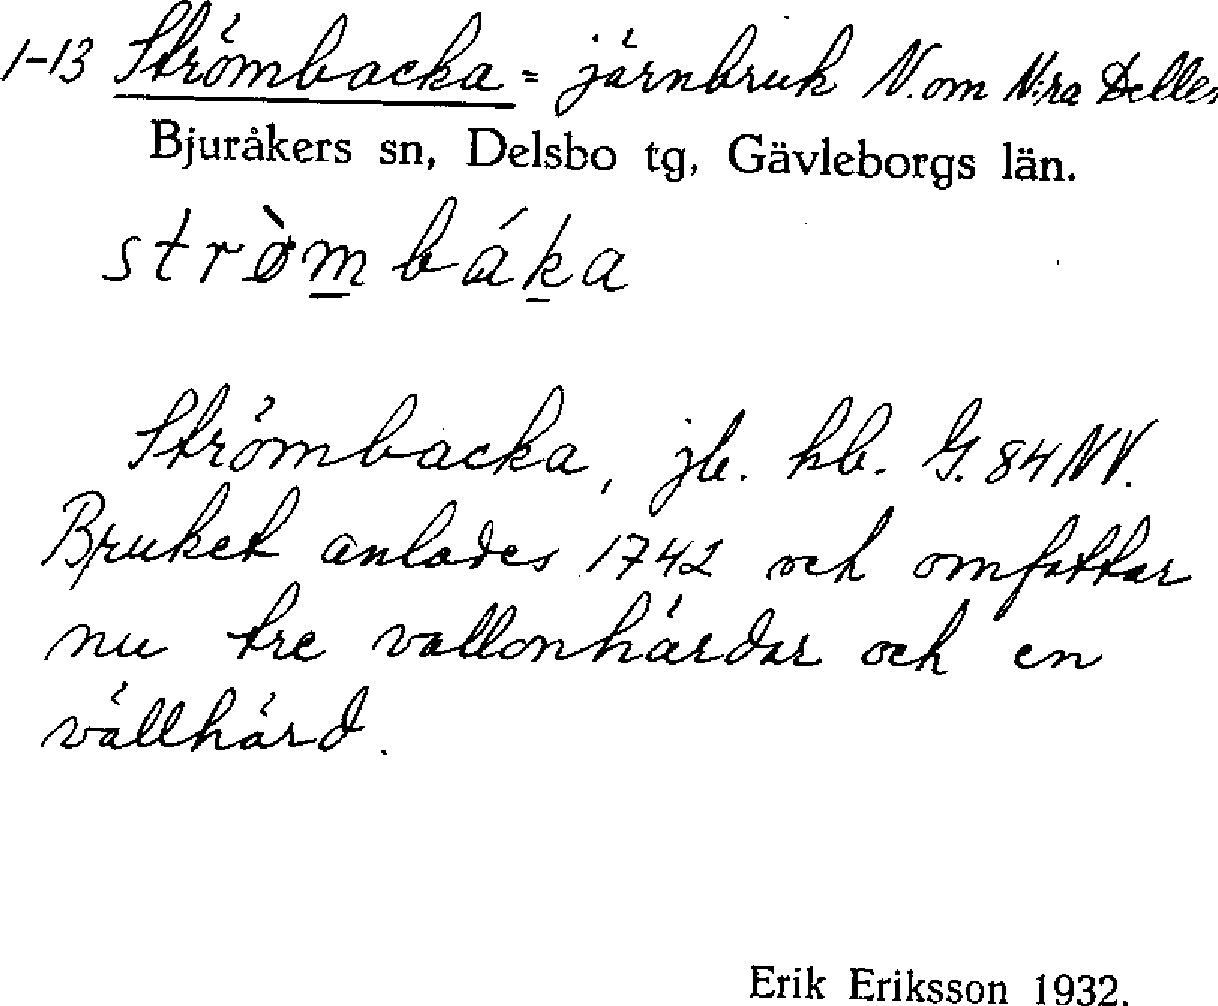 1-13 Strömbacka = järnbruk N. om N:ra Dellen
Bjuråkers sn, Delsbo tg, Gävleborgs län.
strø̀m̲bák̲a
Strömbacka, jb. hb. G. 84 NV.
Bruket anlades 1742 och omfattar
nu tre vallonhärdar och en
vällhärd.
Erik Eriksson 1932.